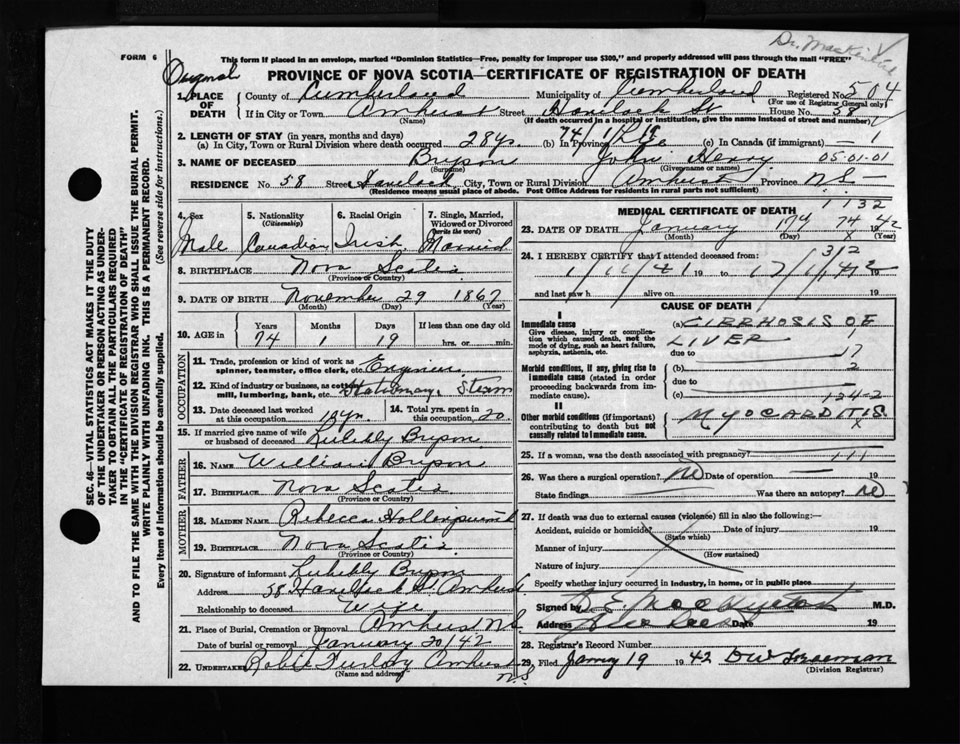 Dr. MacKenzie
FORM 6
This form if placed in an envelope, marked "Dominion Statistics—Free, penalty for improper use $300," and properly addressed will pass through the mail "FREE"
Original
PROVINCE OF NOVA SCOTIA—CERTIFICATE OF REGISTRATION OF DEATH
1. PLACE OF DEATH County of Cumberland Municipality of Cumberland Registered No. 504
(For use of Registrar General only)
If in City or Town Amherst Street Havelock St House No. 58
(Name) (If death occurred in a hospital or institution, give the name instead of street and number)
2. LENGTH OF STAY (in years, months and days) 74/1/19
(a) In City, Town or Rural Division where death occurred 28 yrs. (b) In Province Life (c) In Canada (if immigrant) 1
3. NAME OF DECEASED Bryson John Henry 05-01-01
(Surname) (Given name or names)
RESIDENCE No. 58 Street Havelock City, Town or Rural Division Amherst Province N.S.
(Residence means usual place of abode. Post Office Address for residents in rural parts not sufficient)
1132
4. Sex Male
5. Nationality (Citizenship) Canadian
6. Racial Origin Irish
7. Single, Married, Widowed or Divorced (write the word) Married
8. BIRTHPLACE Nova Scotia
(Province or Country)
9. DATE OF BIRTH November 29 1867
(Month) (Day) (Year)
10. AGE in Years Months Days If less than one day old
74 1 19 hrs. or min.
OCCUPATION
11. Trade, profession or kind of work as spinner, teamster, office clerk, etc. Engineer
12. Kind of industry or business, as cotton mill, lumbering, bank, etc. Stationary Steam
13. Date deceased last worked at this occupation yr.
14. Total yrs. spent in this occupation 20
15. If married give name of wife or husband of deceased Bryson
FATHER
16. NAME William Bryson
17. BIRTHPLACE Nova Scotia
(Province or Country)
MOTHER
18. MAIDEN NAME Rebecca
19. BIRTHPLACE Nova Scotia
(Province or Country)
20. Signature of informant Bryson
Address 58 Havelock St Amherst
Relationship to deceased Wife
21. Place of Burial, Cremation or Removal Amherst NS
Date of burial or removal January 20/42
22. UNDERTAKER Robt Amherst N.S.
(Name and address)
MEDICAL CERTIFICATE OF DEATH
23. DATE OF DEATH January 74 74 1942
(Month) (Day) (Year)
x
312
24. I HEREBY CERTIFY that I attended deceased from:
1/11/41 19 to 17/1/42 19
and last saw h alive on 19
CAUSE OF DEATH
I
Immediate cause
Give disease, injury or complication which caused death, not the mode of dying, such as heart failure, asphyxia, asthenia, etc.
(a) CIRRHOSIS OF LIVER
due to 17
Morbid conditions, if any, giving rise to immediate cause (stated in order proceeding backwards from immediate cause).
(b) 2
due to
(c) 124-2
II
Other morbid conditions (if important) contributing to death but not causally related to immediate cause.
MYOCARDITIS
x
25. If a woman, was the death associated with pregnancy? 111
26. Was there a surgical operation? No Date of operation 19
State findings Was there an autopsy? No
27. If death was due to external causes (violence) fill in also the following:—
Accident, suicide or homicide? Date of injury 19
(State which)
Manner of injury
(How sustained)
Nature of injury
Specify whether injury occurred in industry, in home, or in public place
Signed by M.D.
Address Date 19
28. Registrar's Record Number
29. Filed January 19 1942
(Division Registrar)
SEC. 46—VITAL STATISTICS ACT MAKES IT THE DUTY
OF THE UNDERTAKER OR PERSON ACTING AS UNDERTAKER TO OBTAIN ALL THE PARTICULARS REQUIRED
IN THE "CERTIFICATE OF REGISTRATION OF DEATH"
AND TO FILE THE SAME WITH THE DIVISION REGISTRAR WHO SHALL ISSUE THE BURIAL PERMIT.
WRITE PLAINLY WITH UNFADING INK. THIS IS A PERMANENT RECORD.
Every item of information should be carefully supplied. (See reverse side for instructions.)